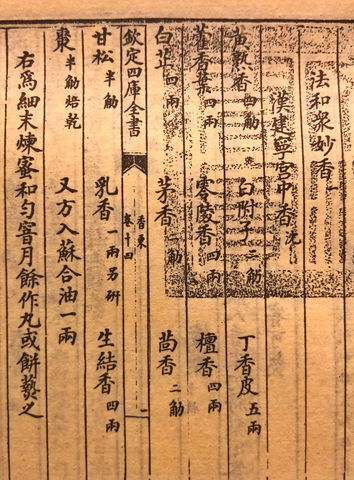 法和衆妙香一
漢建寧宫中香沈
黄熟香四觔 白附子二觔 丁香皮五兩
藿香葉四兩 零陵香四兩 檀香四兩
白芷四兩 茅香二觔 茴香二觔
欽定四庫全書 香乘 卷十四 一
甘松半觔 乳香一兩另研 生結香四兩
棗半觔焙乾 又方入蘇合油一兩
右為細末煉蜜和勻窨月餘作丸或餅爇之